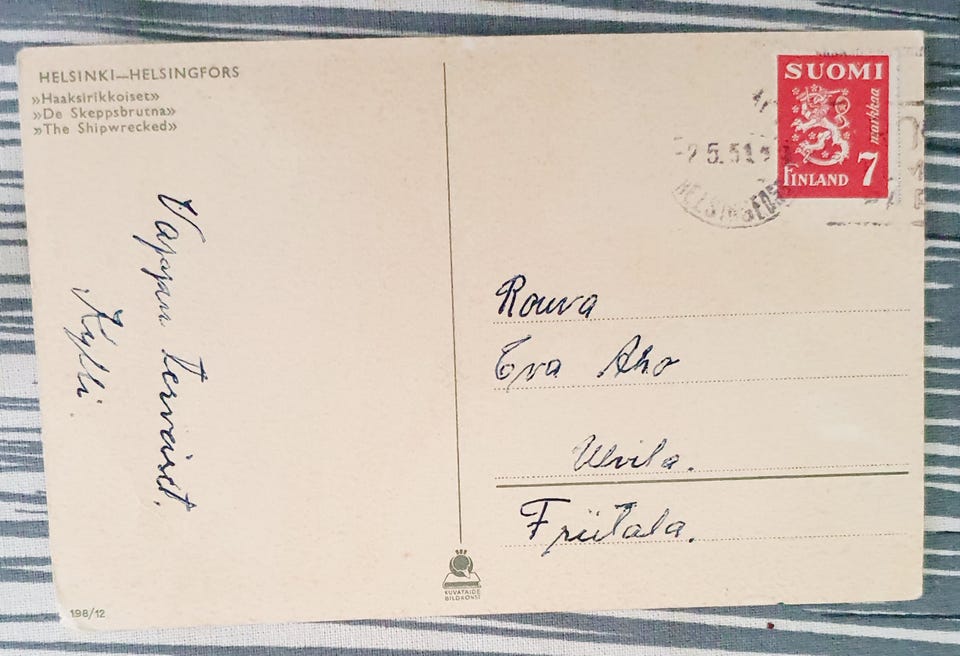 HELSINKI—HELSINGFORS
»Haaksirikkoiset»
»De Skeppsbrutna»
»The Shipwrecked»
Vapun Terveiset.
Kylli.
SUOMI
markkaa
7
FINLAND
-2.5.51
HELSINGFORS
Rouva
Eva Aho
Ulvila.
Friitala.
KUVATAIDE
BILDKONST
198/12